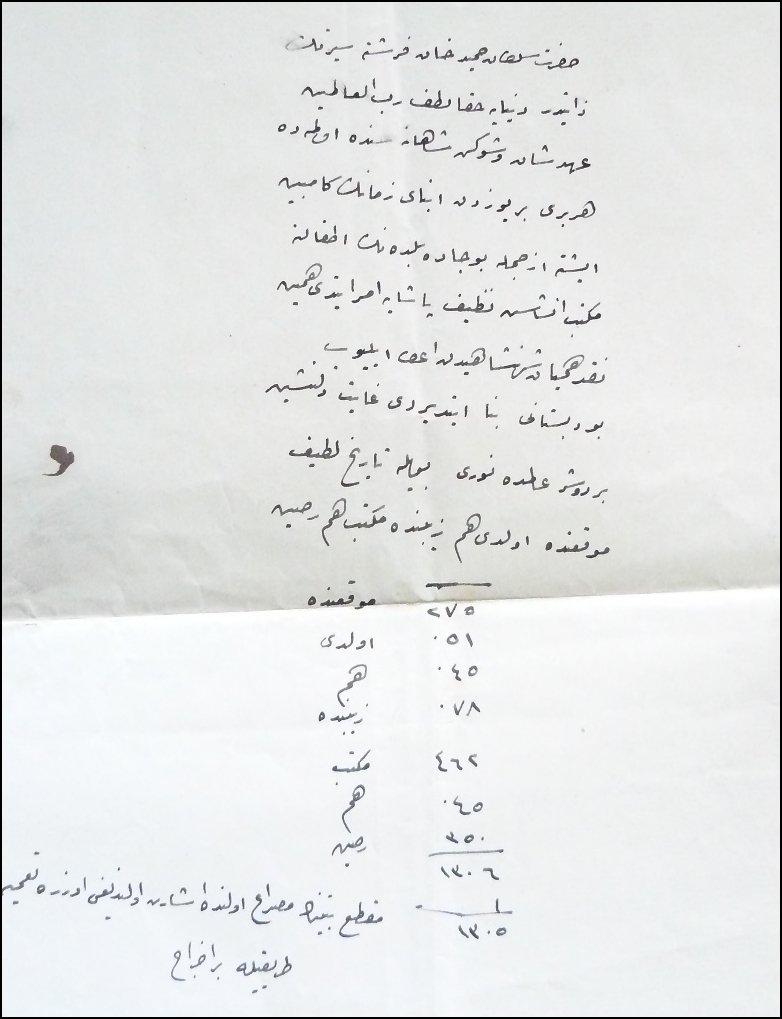 حضرت سلطان حمید خان فرشته سیرتك
ذاتیدر دنیایه حقا لطف رب العالمین
عهد شان و شوكت شاهانه سنده اولمه ده
هر بری بر یوزدن ابنای زمانك كامبین
ایشته از جمله بو جاده بلده نك اطفالنه
مكتب انشاسن نظیف پاشایه امر ایتدی همین
نقد همیان شهنشاهیدن اعطا ایلیوب
بو دبستانی بنا ایتدیردی غایت دلنشین
بر دوشر عالمده نوری بویله تاریخ لطیف
موقعنده اولدی هم زیبنده مكتب هم رصین
موقعنده ٢٧٥
اولدی ٠٥١
هم ٠٤٥
زیبنده ٠٧٨
مكتب ٤٦٢
هم ٠٤٥
رصین ٣٥٠
١٣٠٦
١
١٣٠٥
مقطع بیتنك مصراع اولنده اشارت اولندیغی اوزره تعمیه
طریقیله بر اخراج